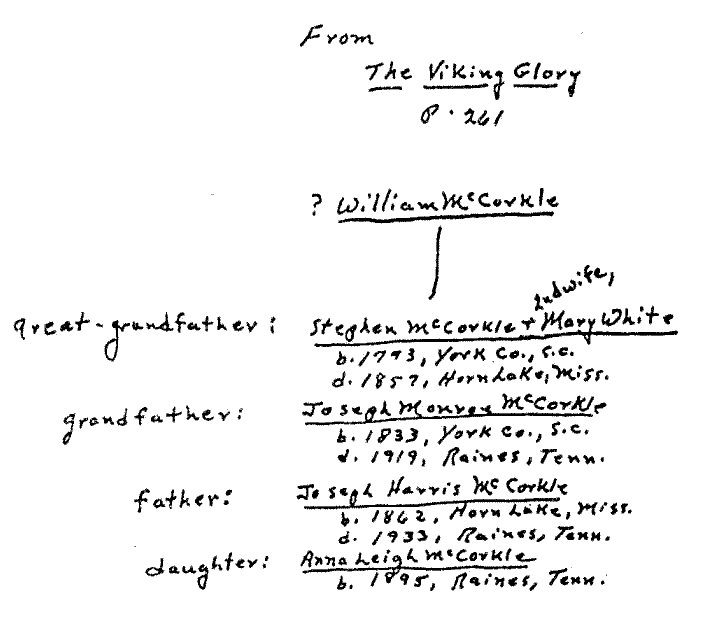 From
The Viking Glory
P. 261
? William McCorkle
2nd wife,
great-grandfather: Stephen McCorkle + Mary White
b. 1793, York Co., S.C.
d. 1857, Horn Lake, Miss.
grandfather: Joseph Monroe McCorkle
b. 1833, York Co., S.C.
d. 1919, Raines, Tenn.
father: Joseph Harris McCorkle
b. 1862, Horn Lake, Miss.
d. 1933, Raines, Tenn.
daughter: Anna Leigh McCorkle
b. 1895, Raines, Tenn.